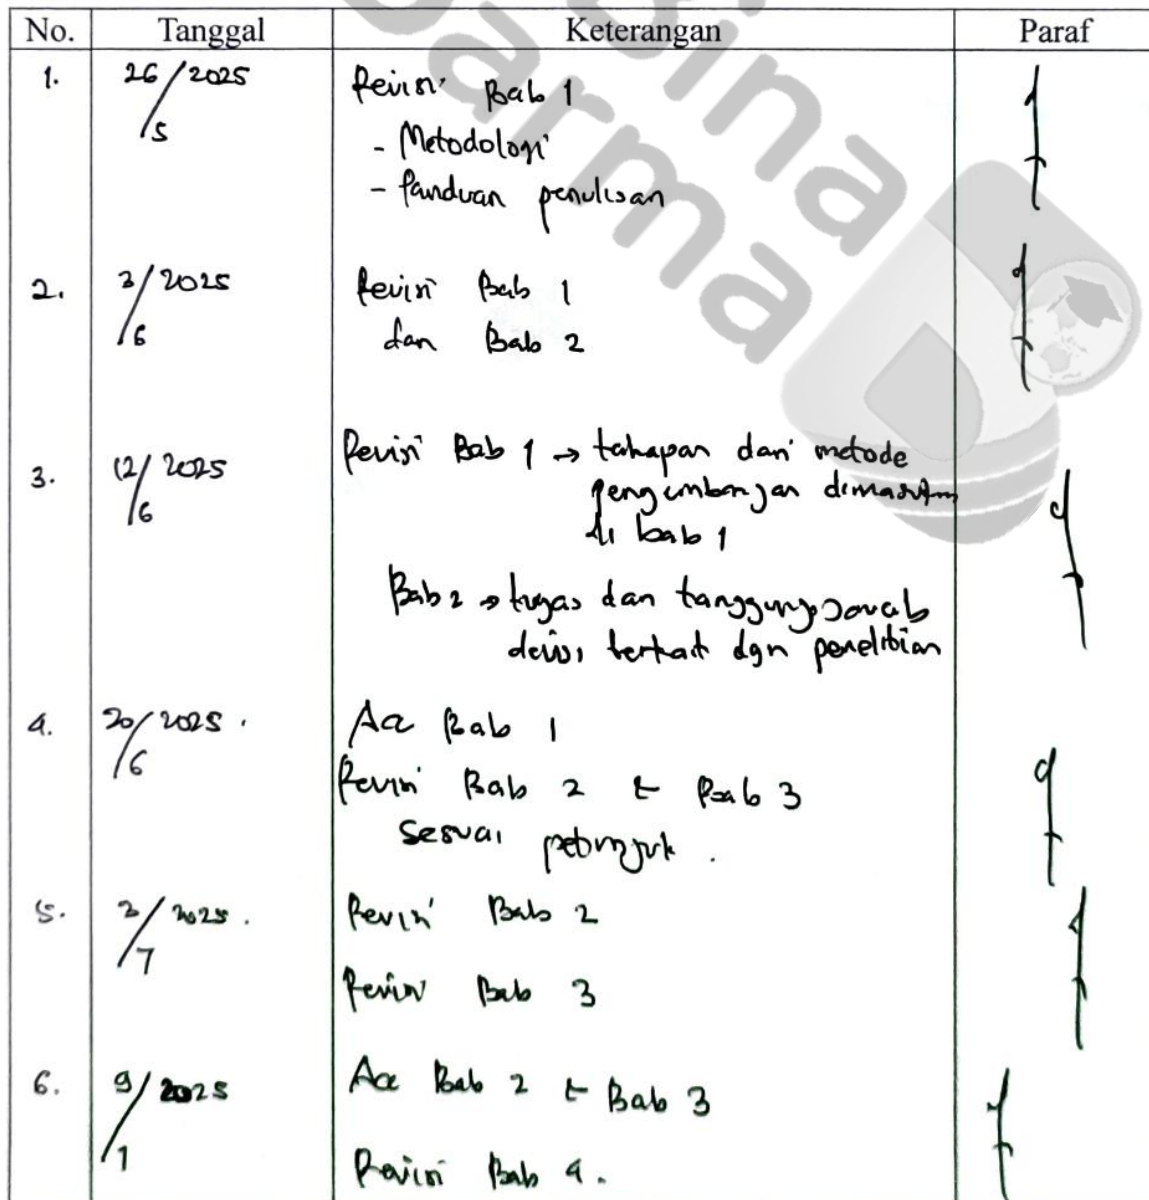 Bina
Darma
No. Tanggal Keterangan Paraf
1. 26/5 2025 Revisi Bab 1
- Metodologi
- Panduan penulisan
2. 3/6 2025 Revisi Bab 1
dan Bab 2
3. 12/6 2025 Revisi Bab 1 → tahapan dari metode
pengembangan dimasukan
di bab 1
Bab 2 → tugas dan tanggung jawab
devisi terkait dgn penelitian
4. 20/6 2025. Acc Bab 1
Revisi Bab 2 & Bab 3
sesuai petunjuk.
5. 2/7 2025. Revisi Bab 2
Revisi Bab 3
6. 9/7 2025 Acc Bab 2 & Bab 3
Revisi Bab 4.